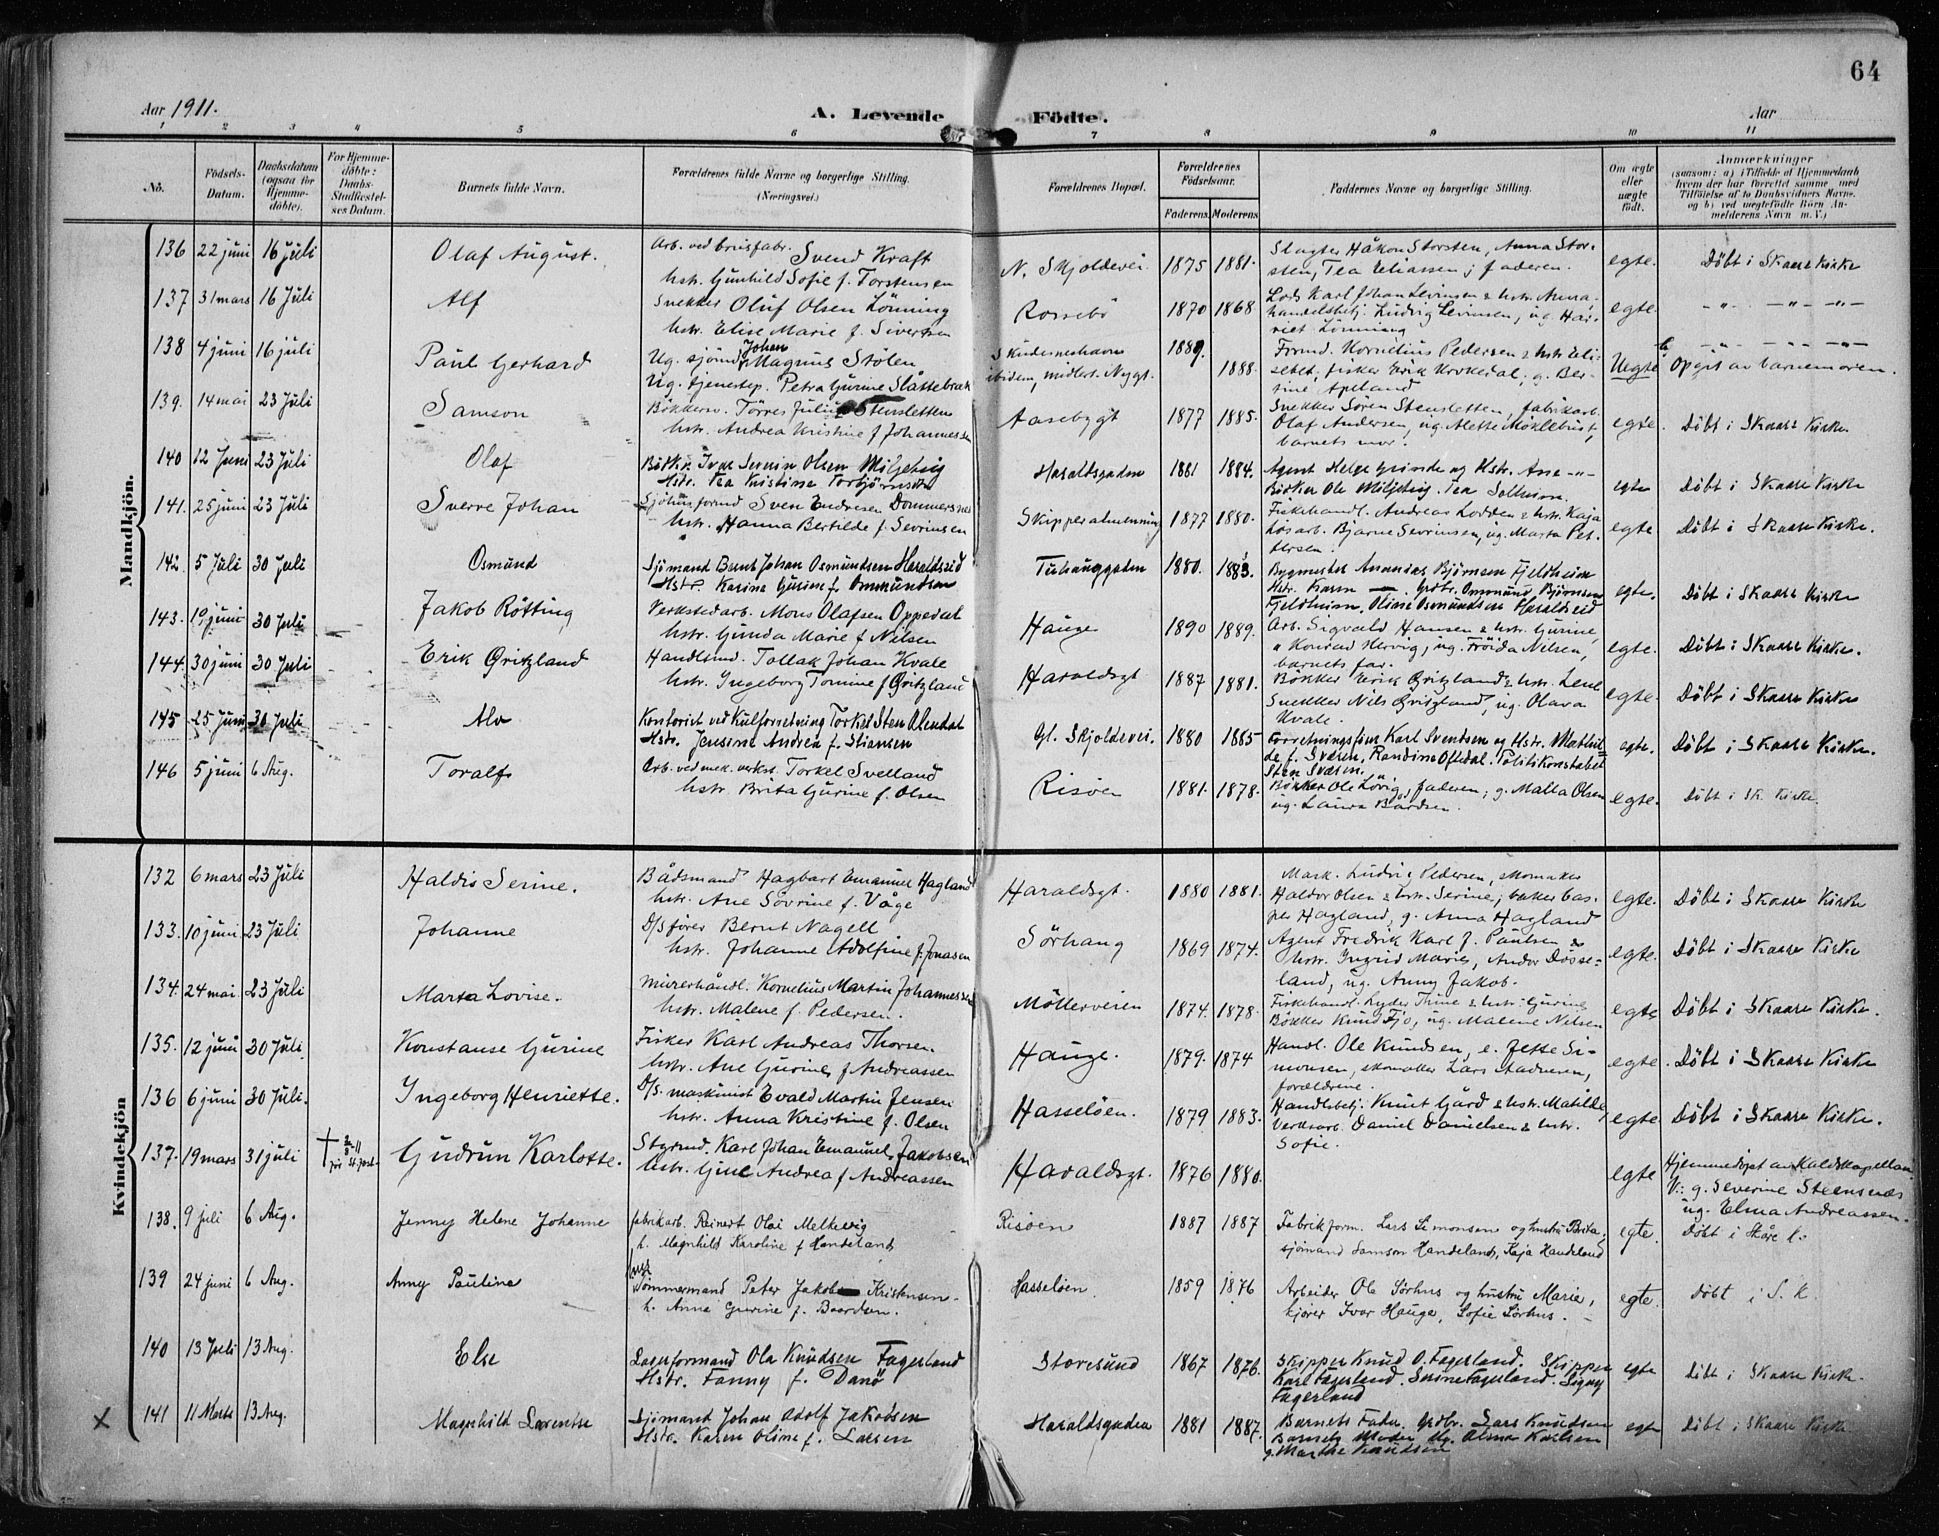 64
Aar 1911.
A. Levende Födte.
Aar
1 2 3 4 5 6 7 8 9 10 11
No.
Födsels-Datum.
Daabsdatum (ogsaa for Hjemme-döbte).
For Hjemme-döbte: Daabs-Stadfæstel-ses Datum.
Barnets fulde Navn.
Forældrenes fulde Navne og borgerlige Stilling. (Næringsvei.)
Forældrenes Bopæl.
Forældrenes Födselsaar.
Faderens. Moderens.
Faddernes Navne og borgerlige Stilling.
Om ægte eller uægte födt.
Anmærkninger
(saasom: a) i Tilfælde af Hjemmedaab
hvem der har forrettet samme, med
Tilföielse af to Daabsvidners Navne.
og b) ved uægtefödte Börn An-
melderens Navn m. V.)
Mandkjön.
136 22 juni 16 juli Olaf August. Arb. ved brusfabr. Svend Kraft
hstr. Gunhild Sofie f. Torstensen
N. Skjoldevei. 1875 1881. Slagter Håkon Storsten, Anna Stor-
sten, Tea Eliassen; faderen. egte. Døbt i Skaare Kirke
137 31 mars 16 Juli Alf Snekker Oluf Olsen Lönning
hstr. Elise Marie f. Sivertsen
Rossebö 1870 1868 Lods Karl Johan Levinsen & hstr. Anna,
handelsbetj. Ludvig Levinsen, ug. Har-
riet Lönning egte. -"- -"- -"-
138 4 juni 16 juli Paul Gerhard Ug. sjömd. Johan Magnus Stölen
Ug. tjenestep. Petra Gurine Slåttebrak
Skudeneshavn
ibidem, midlert. Nygt. 1889. 1888. Formd. Kornelius Pedersen & hstr. Eli-
sebet, fisker Erik Krokedal, g. Ber-
sine Apeland Uegte -"- -"- -"-
Opgit av barnemoren.
139. 14 mai 23 Juli Samson Bökkersv. Törres Julius Stensletten
hstr. Andrea Kristine f Johannessen
Aasebygt 1877 1885. Snekker Sören Stensletten, fabrikarb.
Olaf Andersen, ug. Alette Möklebust,
barnets mor. egte. Döbt i Skaare Kirke
140 12 Juni 23 Juli Olaf Bödker Ivar Severin Olsen Miljeteig
Hstr. Tea Kristine Torbjørnsen
Haraldsgaden 1881 1884. Agent Helge Grinde og Hstr. Ane -"-
Bödker Ole Miljeteig. Tea Solheim. egte Døbt i Skaare Kirke
141. 25 juni 23 Juli Sverre Johan Sjöhusformd Sven Endresen Dommersnes
hstr. Hanna Bertilde f. Sevrinsen
Skipperalmenning 1877 1880. Fiskehandl. Andreas Lodden & hstr. Kaja
Losarb. Bjarne Sevrinsen, ug. Marta Pet-
tersen. egte Døbt i Skaare Kirke.
142. 5 Juli 30 Juli Osmund Sjömand Bernt Johan Osmundsen Haraldseid
Hstr. Karine Gurine f. Ommundsen
Tuhauggaden 1880. 1883. Bygmester Ananias Bjørnsen Fjeldheim
Hstr. Karen —. Grdbr. Ommund Bjørnsen
Fjeldheim, Oline Osmundsen Haraldseid egte. Døbt i Skaare Kirke
143. 19 juni 30 Juli Jakob Rötting Verkstedarb. Mons Olafsen Oppedal
hstr. Gunda Marie f. Nilsen
Hauge 1890 1889. Arb. Sigvald Hansen & hstr. Gurine,
" Konrad Hervig, ug. Fröida Nilsen,
barnets far. egte. Døbt i Skaare Kirke.
144. 30 juni 30 Juli Erik Qritzland Handlsmd. Tollak Johan Kvale
hstr. Ingeborg Tomine f. Qritzland
Haraldsgt 1887 1881. Bökker Erik Qritzland & hstr. Lene
Snekker Nils Qritzland, ug. Olava
Kvale. egte. Døbt i Skaare Kirke
145 25 Juni 30 Juli Alv Kontorist ved Kulforretning Torkel Sten Olendal
Hstr. Jensine Andrea f. Stiansen
Gl. Skjoldevei. 1880 1885 Forretningsfører Karl Svendsen og Hstr. Mathil-
de f. Sværen, Randine Oftedal. Politikonstabel
Sten Sværen. egte. Døbt i Skaare Kirke.
146 5 juni 6 Aug. Toralf Arb. ved mek. verkst. Torkel Svelland
hstr. Brita Gurine f. Olsen
Risöen 1881. 1878. Bökker Ole Lövig, faderen, g. Malla Olsen
ug. Laura Bårdsen. egte. Döbt i Sk. Kirke.
Kvindekjön
132 6 mars 23 Juli Haldis Serine. Bådsmand Hagbart Emanuel Hagland
hstr. Ane Sövrine f. Våge
Haraldsgt. 1880 1881. Mask. Ludvig Pedersen, skomaker
Haldor Olsen & hstr. Serine, baker Cas-
per Hagland, g. Anna Hagland egte. Døbt i Skaare Kirke
133. 10 juni 23 Juli Johanne D/S förer Bernt Nagell
hstr. Johanne Adolfine f. Jonassen
Sörhaug 1869 1874. Agent Fredrik Karl J. Paulsen &
hstr. Ingrid Marie, Andor Dösse-
land, ug. Anny Jakob. egte. Døbt i Skaare Kirke
134. 24 mai 23 Juli Marta Lovise. Murerhåndl. Kornelius Martin Johannessen
hstr. Malene f. Pedersen.
Möllerveien 1874. 1878. Fiskehandl. Lyder Thine & hstr. Gurine
Bökker Knud Fjo, ug. Malene Nilsen egte Døbt i Skaare Kirke.
135. 12 juni 30 Juli Konstanse Gurine Fisker Karl Andreas Thorsen.
hstr. Ane Gurine f. Andreassen
Hauge. 1879. 1874 Handl. Ole Knudsen, e. Jette Si-
monsen, skomaker Lars Andresen,
forældrene. egte. Døbt i Skaare Kirke.
136 6 juni 30 Juli. Ingeborg Henriette. D/S. maskinist Evald Martin Jensen
hstr. Anna Kristine f. Olsen
Hasselöen. 1879 1883. Handlsbetj. Knut Gård & hstr. Matilde,
Verksarb. Daniel Danielsen & hstr.
Sofie. egte Døbt i Skaare Kirke.
137. 19 mars 31 juli Gudrun Karlotte. Styrmd. Karl Johan Emanuel Jakobsen
hstr. Gine Andrea f Andreassen
Haraldsgt. 1876 1880. egte Hjemmedöpt av Kaldskapellan
V: g. Severine Steensnæs
ug. Elma Andreassen.
138. 9 juli 6 Aug. Jenny Helene Johanne fabrikarb. Reinert Olai Melkevig
h. Magnhild Karoline f Handeland
Risöen 1887 1887 Fabrikform. Lars Simonsen og hustru Berta,
sjömand Samson Handeland, Kaja Handeland egte. Döbt i Skåre k.
139 24 juni 6 Aug. Anny Pauline Tömmermand Peter Jakob Kristensen
h. Anna Gurine f. Baardsen.
Hasselöen. 1859 1876 Arbeider Ole Sörhus og hustru Marie,
kjörer Ivar Hauge, Sofie Sörhus. egte. Döbt i S. k.
140 13 Juli 13 Aug. Else Lagerformand Ola Knudsen Fagerland
Hstr. Fanny f. Danö
Storesund 1867 1876. Skipper Knud O. Fagerland. Skipper
Karl Fagerland. Serine Fagerland. Signy
Fagerland egte Døbt i Skaare Kirke.
X 141 11 Marts 13 Aug. Magnhild Lorentse Sjömand Johan Adolf Jakobsen
Hstr. Karen Oline f. Larsen
Haraldsgaden 1881 1887. Barnets Fader. Grdbr. Lars Knudsen
Barnets Moder Ug. Alma Karlsen
g. Marthe Knudsen egte Døbt i Skaare Kirke